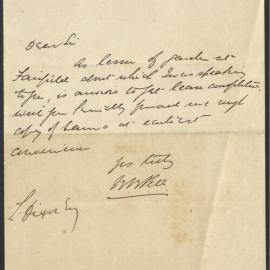 Dear Sir
As lessee of garden at
Fairfield about which I was speaking
to you, is anxious to get lease completed,
will you kindly forward me rough
copy of same at earliest
convenience
yrs truly